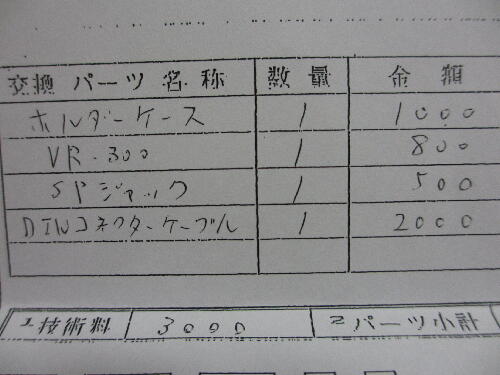 交換 パーツ 名称 数量 金額
ホルダーケース 1 1000
VR-300 1 800
SPジャック 1 500
DINコネクターケーブル 1 2000
1技術料 3000 2パーツ小計